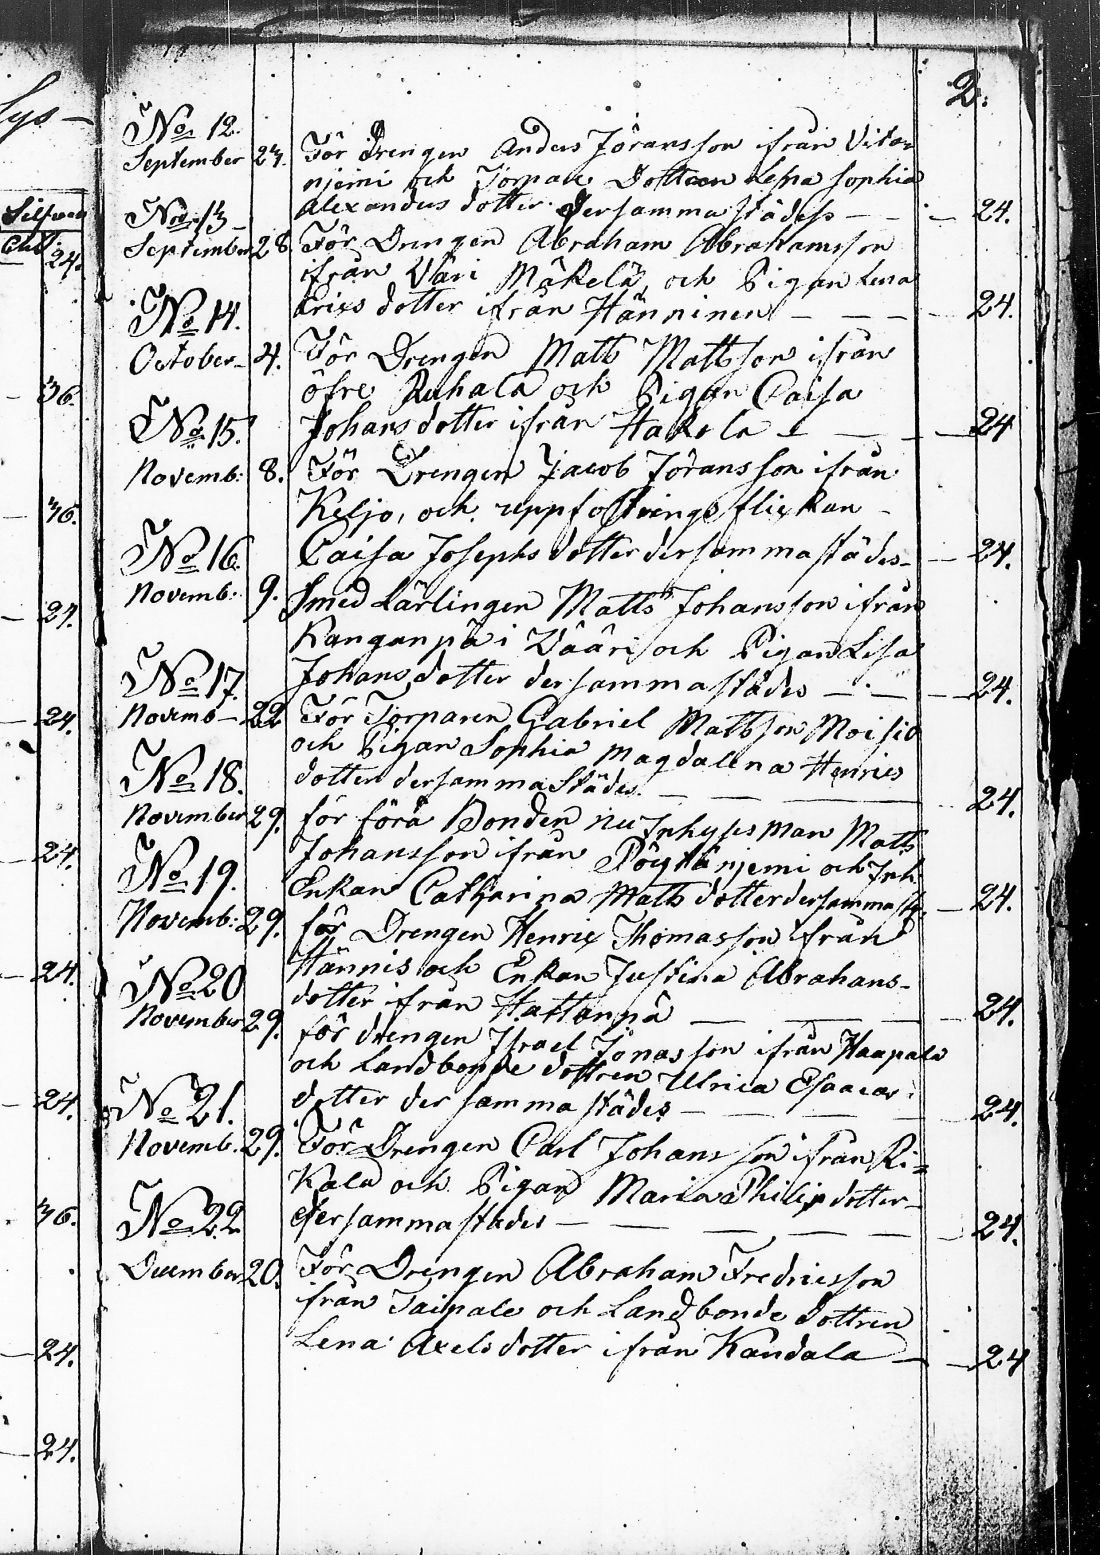 Lys
Silfver
24.
36.
36.
24.
24.
24.
24.
24.
36.
24.
24.
2.
No 12.
September 27. För Drengen Anders Jöransson ifrån Vita=
njemi och Torpare Dottren Lena Sophia
Alexanders dotter dersammastädes — 24.
No 13
September 28. För Drengen Abraham Abrahamsson
ifrån Väri Mäkelä, och Pigan Lena
Erics dotter ifrån Hänninen — — — 24.
No 14.
October 4. För Drengen Matts Mattsson ifrån
öfre Ruhala och Pigan Caisa
Johansdotter ifrån Hakola — — — 24
No 15.
Novemb: 8. För Drengen Jacob Jöransson ifrån
Keljo, och uppfostrings flickan
Caisa Josephs dotter dersammastädes — 24.
No 16.
Novemb: 9. Smed Lärlingen Matts Johansson ifrån
Kanganpä i Vääri och Pigan Lisa
Johans dotter dersammastädes — — — 24.
No 17.
Novemb 22 För Torparen Gabriel Mattsson Moisio
och Pigan Sophia Magdalena Henrics
dotter dersammastädes. — — — 24.
No 18.
November 29. för förra Bonden nu Inhyses man Matts
Johansson ifrån Pöytänjemi och Inh.
Enkan Catharina Matts dotter dersammast. — 24.
No 19.
Novemb: 29. för Drengen Henric Thomasson ifrån
Hännis och Enkan Justina Abrahams-
dotter ifrån Hattanpä — — — 24.
No 20
November 29. för drengen Israel Jonasson ifrån Haapala
och Landbonde dottren Ulrica Esaacs
dotter dersammastädes — — — 24.
No 21.
Novemb. 29. För Drengen Carl Johansson ifrån Ri=
kala och Pigan Maria Philips dotter
dersammastädes — — — 24.
No 22
December 20. För Drengen Abraham Fredricsson
ifrån Taipale och Landbonde dottren
Lena Axels dotter ifrån Kandala — 24